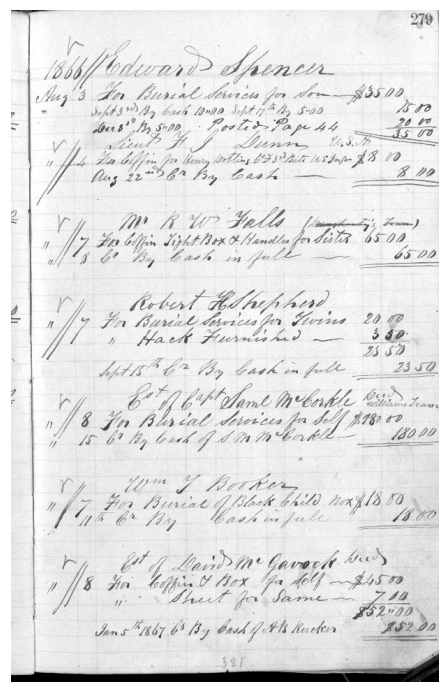 279
1866 Edward Spencer
Aug 3 For Burial Services for Son $35.00
Sept 3rd By Cash 10=00 Sept 17th By 5=00 15 00
Dec 3rd By 5=00 Posted Page 44 20 00
35 00
Lieut H. J. Dunn U.S.A
" 4 For Coffin for Henry Co F 3rd U.S. $8 00
Aug 22nd Cr By Cash 8 00
Mr R W Falls
" 7 For Coffin Tight Box & Handles for Sister 65 00
" 8 Cr By Cash in full 65 00
Robert H Shepherd
" 7 For Burial Services for Twins 20 00
" Hack Furnished 3 50
23 50
Sept 15th Cr By Cash in full 23 50
Est of Capt Saml McCorkle Decd
" 8 For Burial Services for Self $180 00
" 15 Cr By Cash of S M McCorkle 180 00
Wm J Booker
" 7 For Burial of Black Child Box $18 00
" 11th Cr By Cash in full 18 00
Est of David McGavock Decd
" 8 For Coffin & Box for Self $45 00
" Sheet for Same 7 00
$52=00
Jan 5th 1867 Cr By Cash of A B Rucker $52 00
381